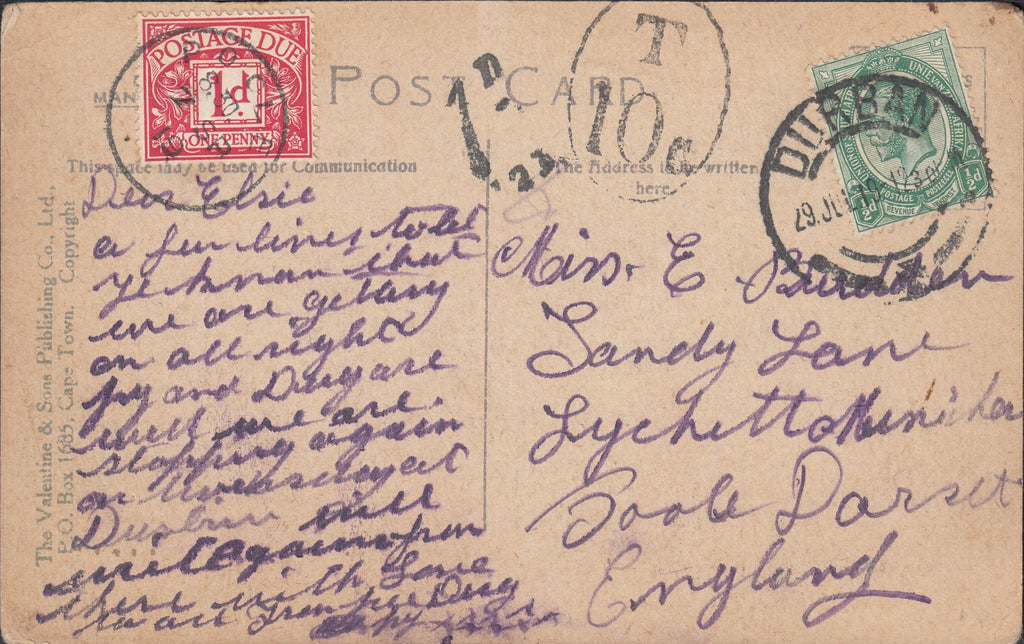 POSTAGE DUE
1d
ONE PENNY
POST CARD
T
10 C
1D.
DURBAN
29. JUL 19
UNIE VAN
UNION OF
AFRIKA
POSTAGE
POSTZEGEL
REVENUE
INKOMST
½d
½d
This space may be used for Communication
The Address to be written
here.
The Valentine & Sons Publishing Co., Ltd.,
P.O. Box 1685, Cape Town. Copyright
Dear Elsie
a few lines to let
ye know that
we are getang
on all right
and Dug are
well we are
stopping again
on at
Durbin will
write again from
there with Love
to all from Dug
Miss. E Budden
Sandy Lane
Lychett
Poole Dorset
England